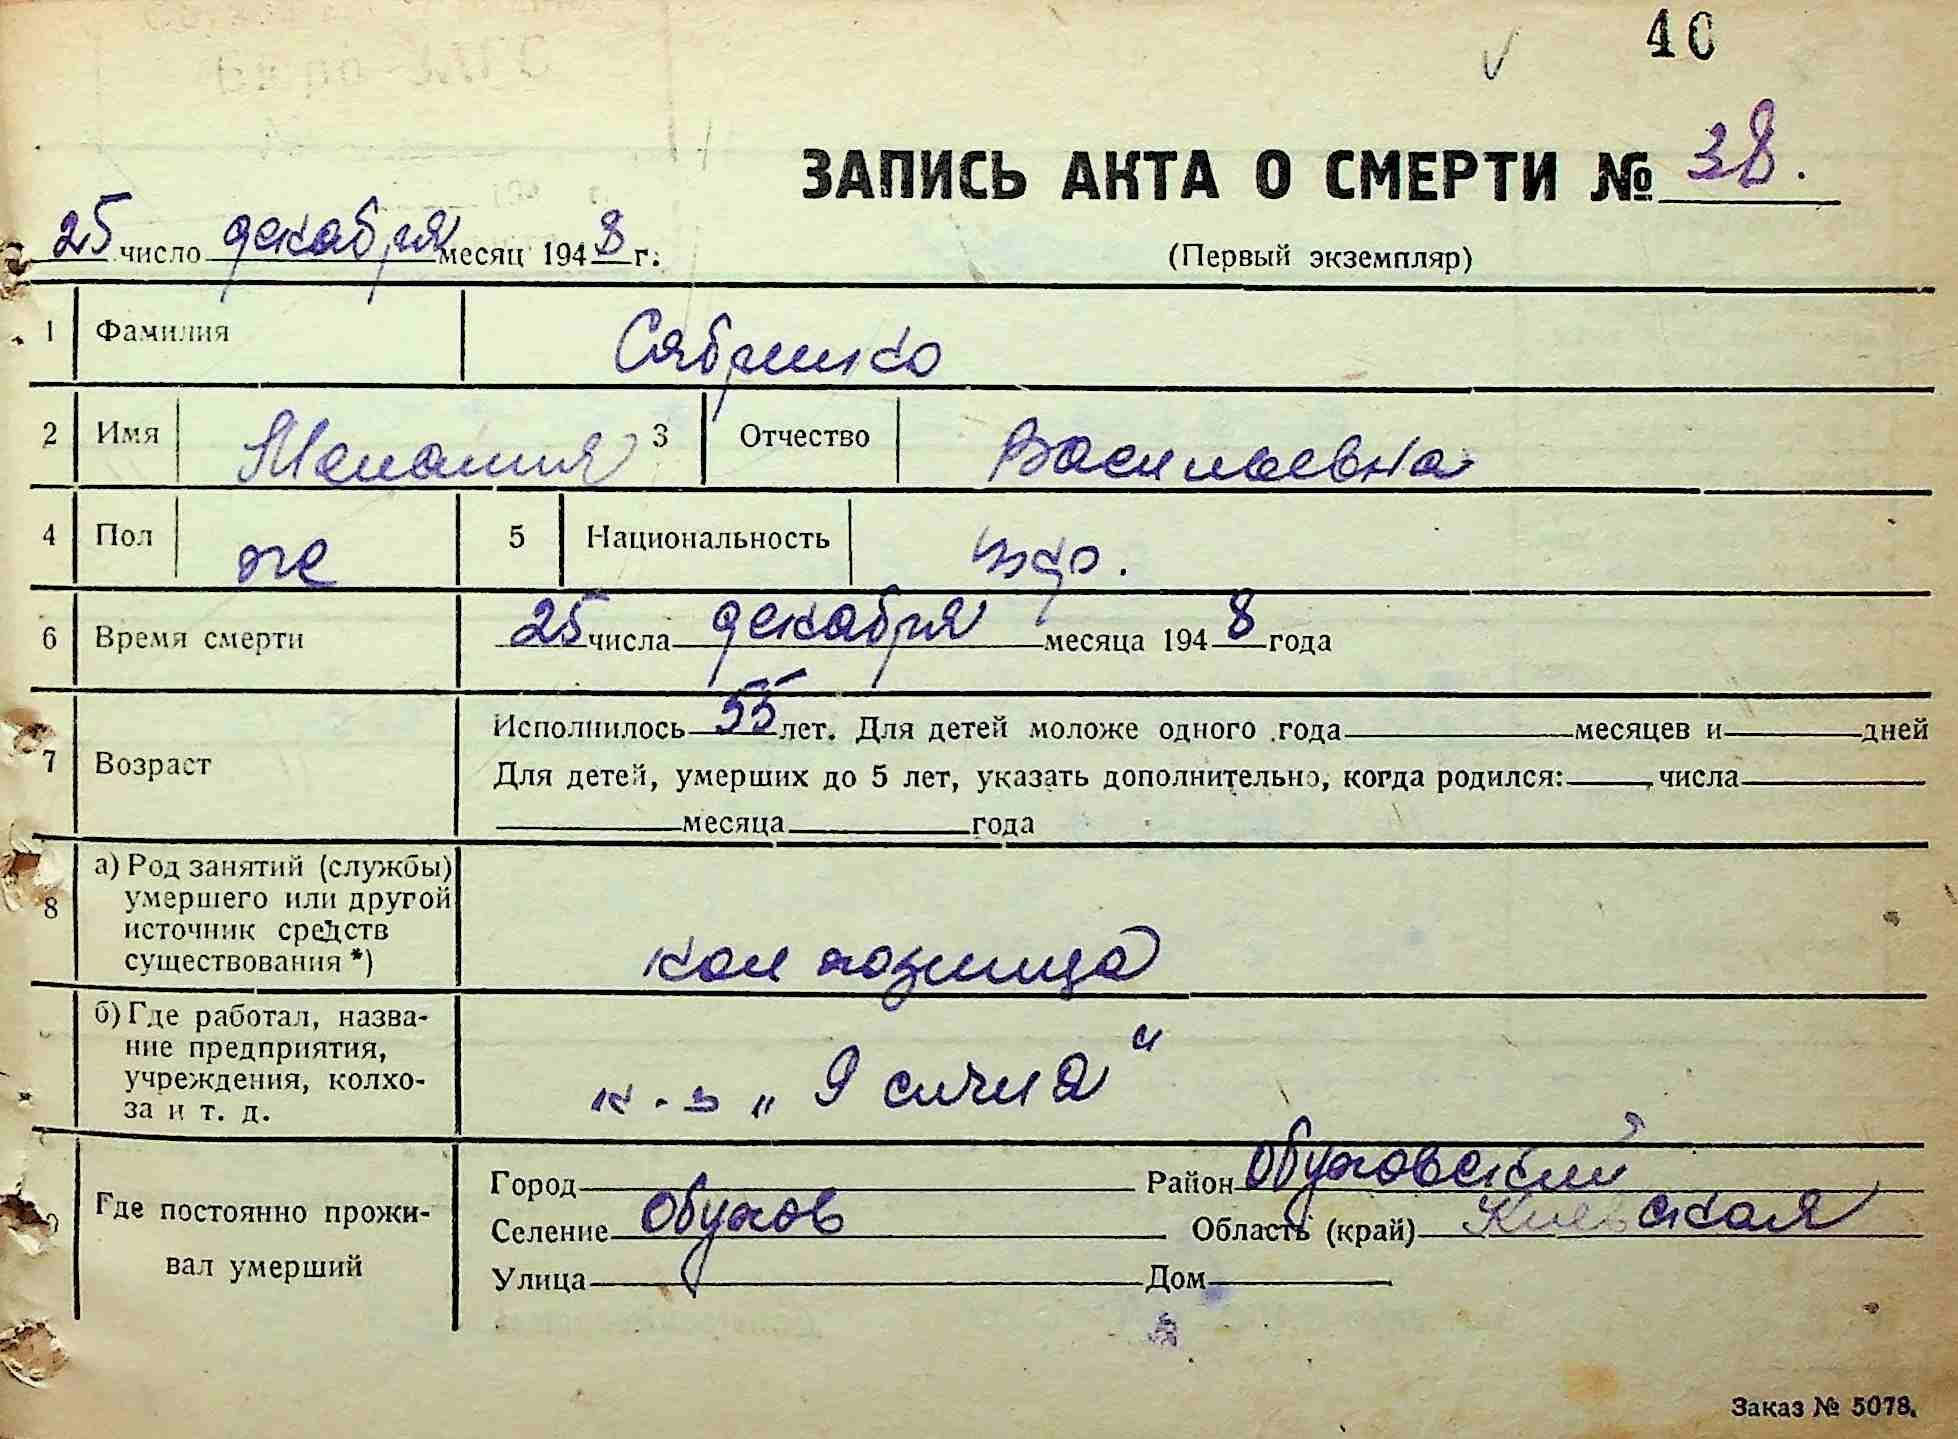 40
ЗАПИСЬ АКТА О СМЕРТИ № 38.
25 число декабря месяц 1948 г.
(Первый экземпляр)
1 Фамилия Сябренко
2 Имя Мелания 3 Отчество Васильевна
4 Пол же 5 Национальность укр.
6 Время смерти 25 числа декабря месяца 1948 года
7 Возраст Исполнилось 55 лет. Для детей моложе одного года месяцев и дней
Для детей, умерших до 5 лет, указать дополнительно, когда родился: числа
месяца года
8 а) Род занятий (службы)
умершего или другой
источник средств
существования *) колхозница
б) Где работал, назва-
ние предприятия,
учреждения, колхо-
за и т. д. к-з „9 сичня“
9 Где постоянно прожи-
вал умерший
Город Район Обуховский
Селение Обухов Область (край) Киевская
Улица Дом
Заказ № 5078.